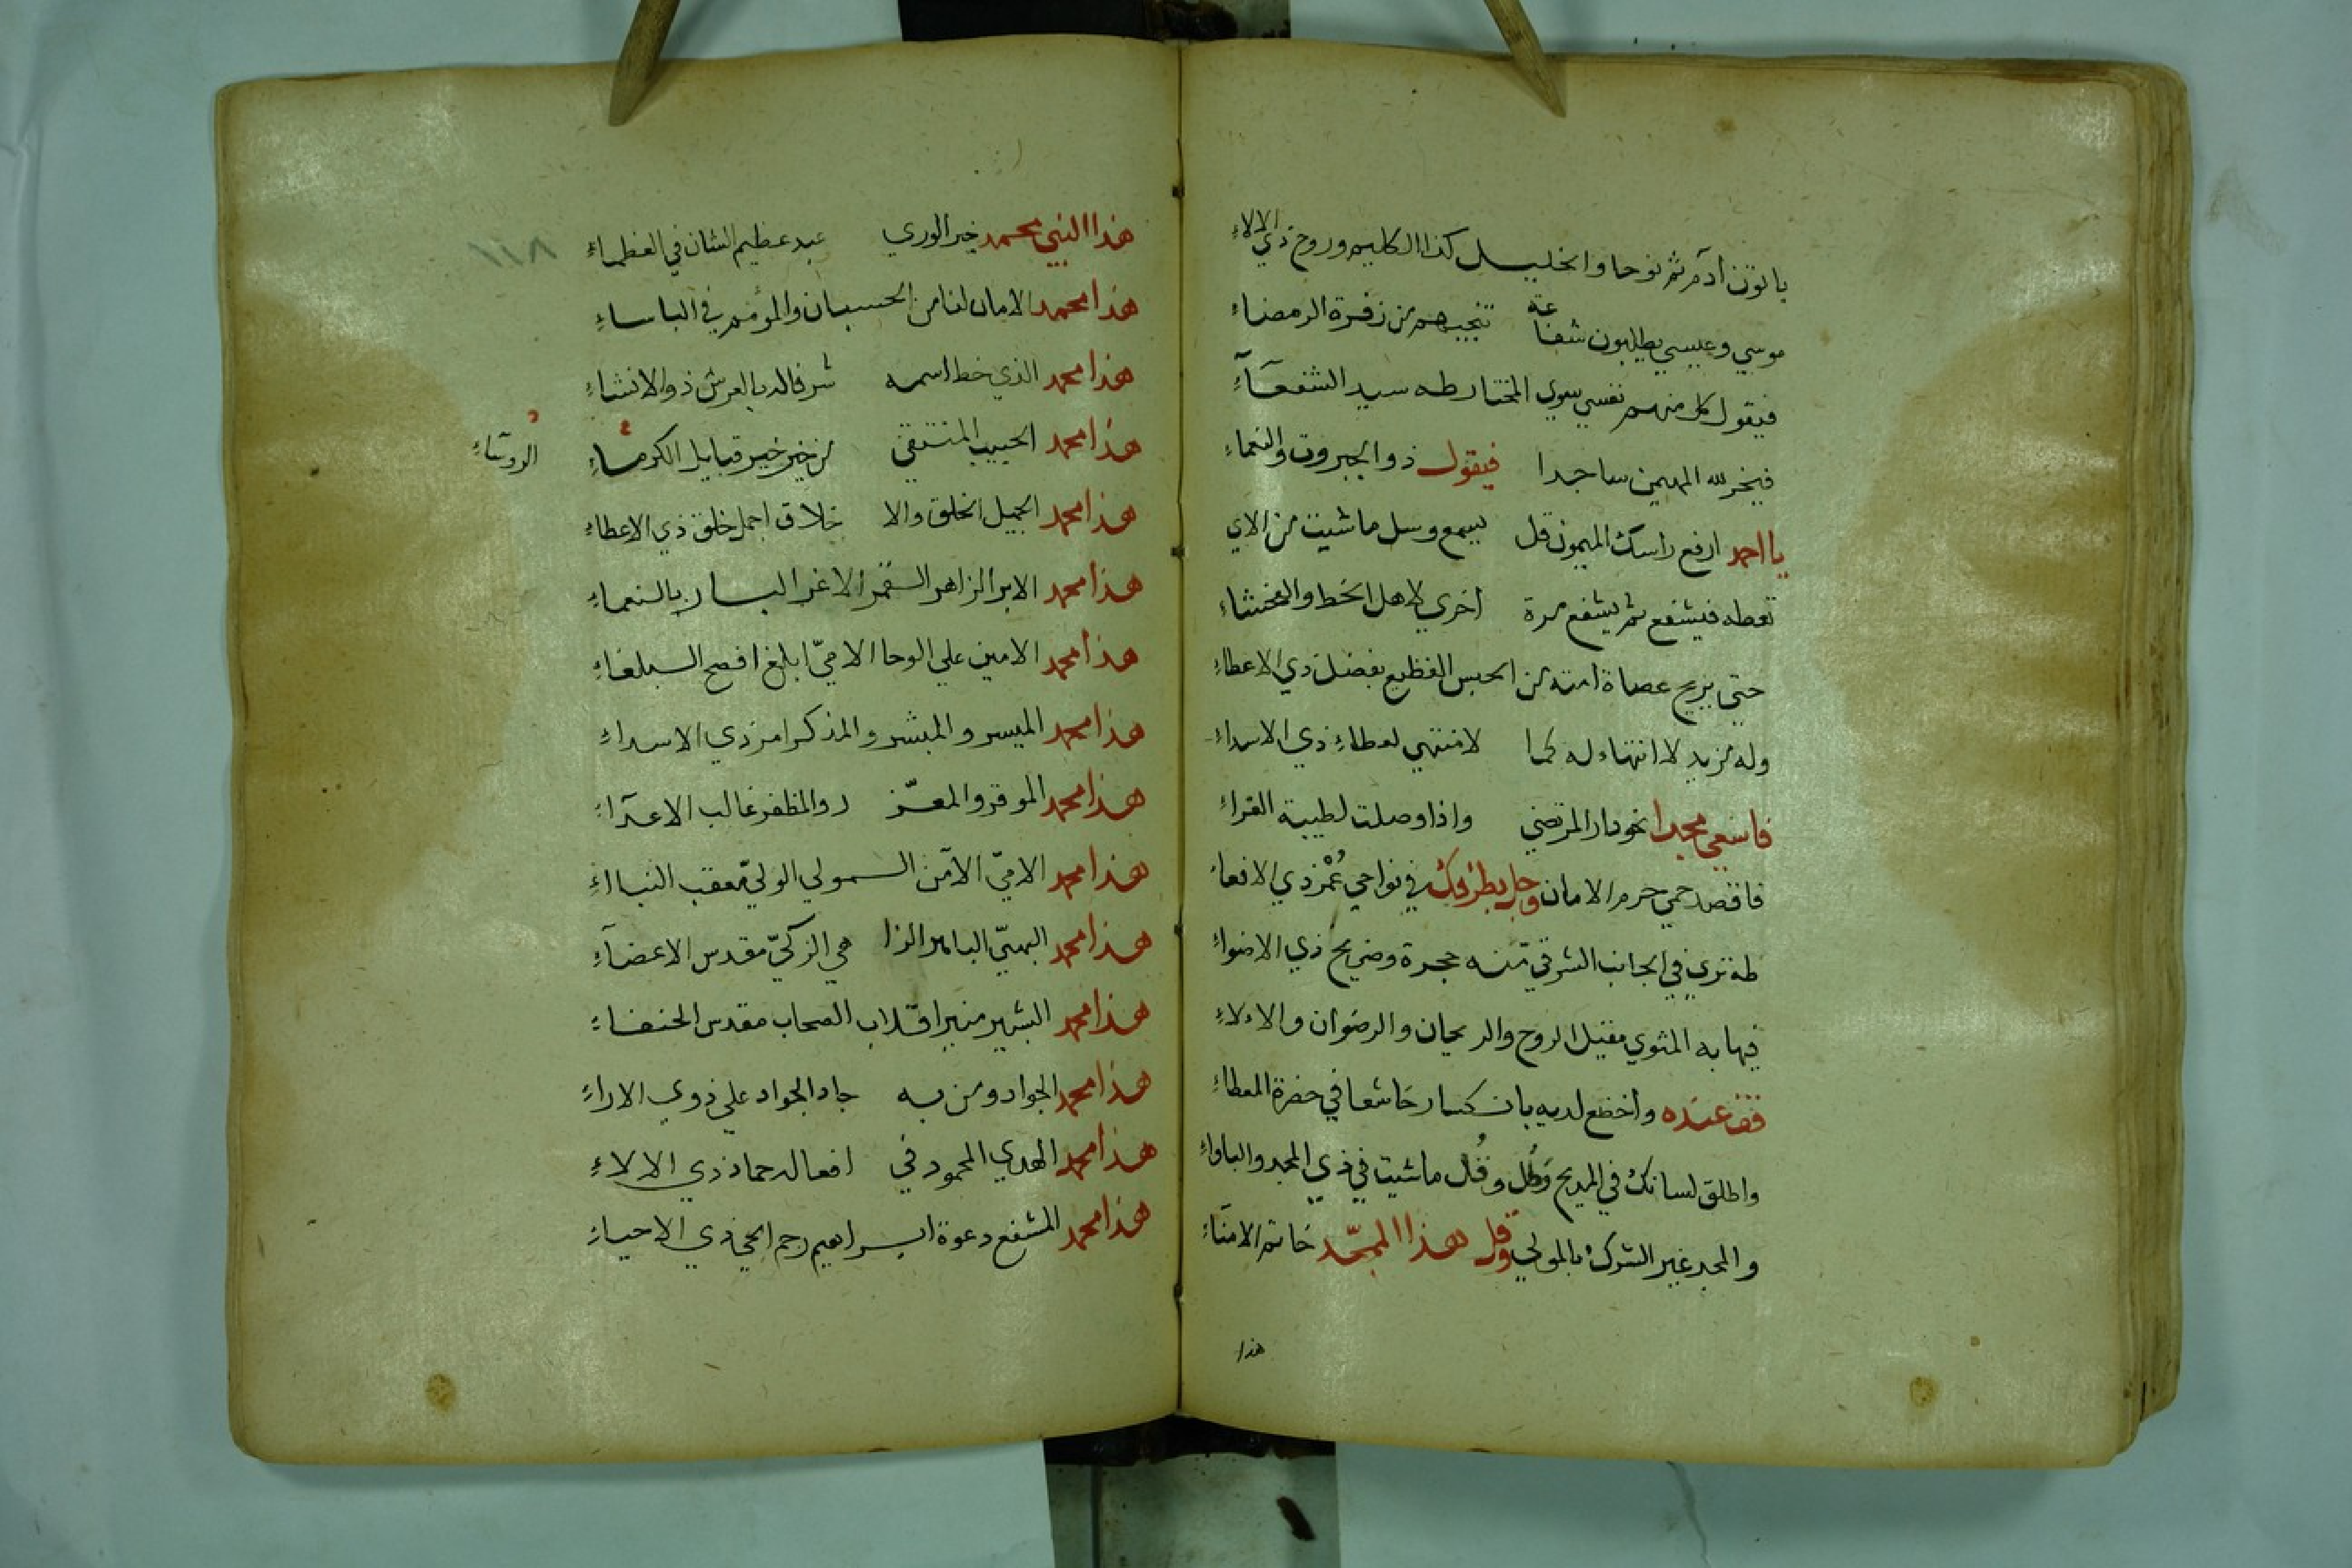 ياتون آدم ثم نوحا والخليل كذا الكليم وروح ذي الالاء
موسي وعيسي يطلبون شفاعة تنجيهم من زفرة الرمضاء
فيقول كل منهم نفسي سوي المختار طه سيد الشفعآء
فيخر لله المهيمن ساجدا فيقول ذو الجبروت والنعماء
يا احمد ارفع راسك الميمون قل يسمع وسل ما شيت من الاي
تعطه فيشفع ثم يشفع مرة اخري لاهل الخط والفحشاء
حتي يزيح عصاة امته من الحبس الفظيع بفضل ذي الاعطاء
وله مزيد لا انتهاء له كما لا منتهي لعطاء ذي الاسداء
فاسعي مجدا نحو دار المرتضي واذا وصلت لطيبة الغراء
فاقصد حمي حرم الامان وجل بطرفك في نواحي
طه تري في الجانب الشرقي منه حجرة وضريح ذي الاضواء
فيها به المثوي مقيل الروح والريحان والرضوان والالاء
فقف عنده واخضع لديه بانكسار خاشعا في حضرة المعطاء
واطلق لسانك في المديح وقل ما شيت في ذي المجد والباواء
والمجد غير الشرك بالمولي وقل هذا الممجد خاتم الامنآء
هذا
هذا النبي محمد خير الوري عبد عظيم الشان في العظماء
١١٨
هذا محمد الامان لنا من الحسبان والمؤمم في الباساء
هذا محمد الذي خط اسمه شرفا له بالعرش ذو الانشاء
هذا محمد الحبيب المنتقي من خير خير قبايل الكرماء
الروسآء
هذا محمد الجميل الخلق والا خلاق اجمل خلق ذي الاعطاء
هذا محمد الابر الزاهر القمر الاغر البار بالنعماء
هذا محمد الامين علي الوحا الاميّ ابلغ افصح البلغاء
هذا محمد الميسر والمبشر والمذكر امر ذي الاسداء
هذا محمد الموقر والمعز ر والمظفر غالب الاعدآء
هذا محمد الاميّ الآمن المولي الوليّ معقب النبااء
هذا محمد البهيّ الباهر الزا هي الزكيّ مقدس الاعضآء
هذا محمد البشير منير الصحاب مقدس الحنفاء
هذا محمد الجواد ومن به جاد الجواد علي ذوي الاراء
هذا محمد الهدي المحمود في افعاله حماد ذي الالاء
هذا محمد المشفع دعوة ابراهيم ذي الاحياء